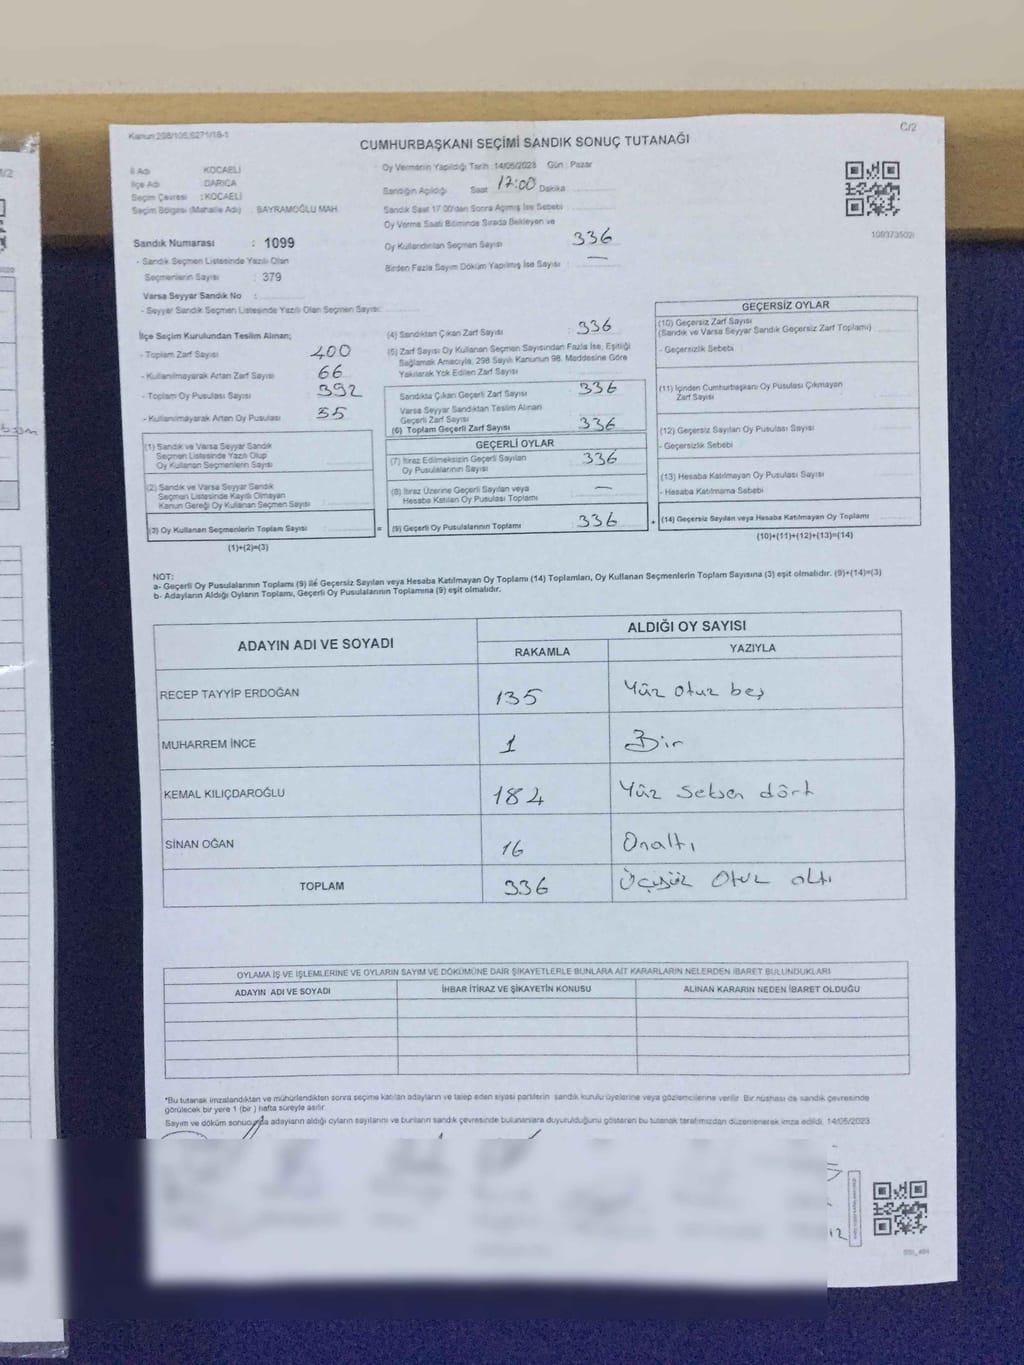 Kanun:298/105,6271/18-1
C/2
CUMHURBAŞKANI SEÇİMİ SANDIK SONUÇ TUTANAĞI
İl Adı KOCAELİ
İlçe Adı DARICA
Seçim Çevresi : KOCAELİ
Seçim Bölgesi (Mahalle Adı) : BAYRAMOĞLU MAH.
Sandık Numarası : 1099
- Sandık Seçmen Listesinde Yazılı Olan
Seçmenlerin Sayısı : 379
Varsa Seyyar Sandık No :
- Seyyar Sandık Seçmen Listesinde Yazılı Olan Seçmen Sayısı:
Oy Vermenin Yapıldığı Tarih :14/05/2023 Gün : Pazar
Sandığın Açıldığı Saat 17:00 Dakika
Sandık Saat 17.00'den Sonra Açılmış İse Sebebi
Oy Verme Saati Bitiminde Sırada Bekleyen ve
Oy Kullandırılan Seçmen Sayısı 336
Birden Fazla Sayım Döküm Yapılmış İse Sayısı : —
109373502
İlçe Seçim Kurulundan Teslim Alınan;
- Toplam Zarf Sayısı 400
- Kullanılmayarak Artan Zarf Sayısı 66
- Toplam Oy Pusulası Sayısı 392
- Kullanılmayarak Artan Oy Pusulası 35
(1) Sandık ve Varsa Seyyar Sandık
Seçmen Listesinde Yazılı Olup
Oy Kullanan Seçmenlerin Sayısı
(2) Sandık ve Varsa Seyyar Sandık
Seçmen Listesinde Kayıtlı Olmayan
Kanun Gereği Oy Kullanan Seçmen Sayısı
(3) Oy Kullanan Seçmenlerin Toplam Sayısı =
(1)+(2)=(3)
(4) Sandıktan Çıkan Zarf Sayısı : 336
(5) Zarf Sayısı Oy Kullanan Seçmen Sayısından Fazla İse, Eşitliği
Sağlamak Amacıyla, 298 Sayılı Kanunun 98. Maddesine Göre
Yakılarak Yok Edilen Zarf Sayısı
Sandıkta Çıkan Geçerli Zarf Sayısı : 336
Varsa Seyyar Sandıktan Teslim Alınan
Geçerli Zarf Sayısı
(6) Toplam Geçerli Zarf Sayısı : 336
GEÇERLİ OYLAR
(7) İtiraz Edilmeksizin Geçerli Sayılan
Oy Pusulalarının Sayısı : 336
(8) İtiraz Üzerine Geçerli Sayılan veya
Hesaba Katılan Oy Pusulası Toplamı : —
(9) Geçerli Oy Pusulalarının Toplamı : 336 +
GEÇERSİZ OYLAR
(10) Geçersiz Zarf Sayısı
(Sandık ve Varsa Seyyar Sandık Geçersiz Zarf Toplamı)
- Geçersizlik Sebebi
(11) İçinden Cumhurbaşkanı Oy Pusulası Çıkmayan
Zarf Sayısı
(12) Geçersiz Sayılan Oy Pusulası Sayısı
- Geçersizlik Sebebi
(13) Hesaba Katılmayan Oy Pusulası Sayısı
- Hesaba Katılmama Sebebi
(14) Geçersiz Sayılan veya Hesaba Katılmayan Oy Toplamı
(10)+(11)+(12)+(13)=(14)
NOT:
a- Geçerli Oy Pusulalarının Toplamı (9) ile Geçersiz Sayılan veya Hesaba Katılmayan Oy Toplamı (14) Toplamları, Oy Kullanan Seçmenlerin Toplam Sayısına (3) eşit olmalıdır. (9)+(14)=(3)
b- Adayların Aldığı Oyların Toplamı, Geçerli Oy Pusulalarının Toplamına (9) eşit olmalıdır.
ADAYIN ADI VE SOYADI
ALDIĞI OY SAYISI
RAKAMLA YAZIYLA
RECEP TAYYİP ERDOĞAN 135 Yüz otuz beş
MUHARREM İNCE 1 Bir
KEMAL KILIÇDAROĞLU 184 Yüz seksen dört
SİNAN OĞAN 16 Onaltı
TOPLAM 336 Üçyüz otuz altı
OYLAMA İŞ VE İŞLEMLERİNE VE OYLARIN SAYIM VE DÖKÜMÜNE DAİR ŞİKAYETLERLE BUNLARA AİT KARARLARIN NELERDEN İBARET BULUNDUKLARI
ADAYIN ADI VE SOYADI İHBAR İTİRAZ VE ŞİKAYETİN KONUSU ALINAN KARARIN NEDEN İBARET OLDUĞU
*Bu tutanak imzalandıktan ve mühürlendikten sonra seçime katılan adayların ve talep eden siyasi partilerin sandık kurulu üyelerine veya gözlemcilerine verilir. Bir nüshası da sandık çevresinde
görülecek bir yere 1 (bir) hafta süreyle asılır.
Sayım ve döküm sonucunda adayların aldığı oyların sayılarını ve bunların sandık çevresinde bulunanlara duyurulduğunu gösteren bu tutanak tarafımızdan düzenlenerek imza edildi. 14/05/2023